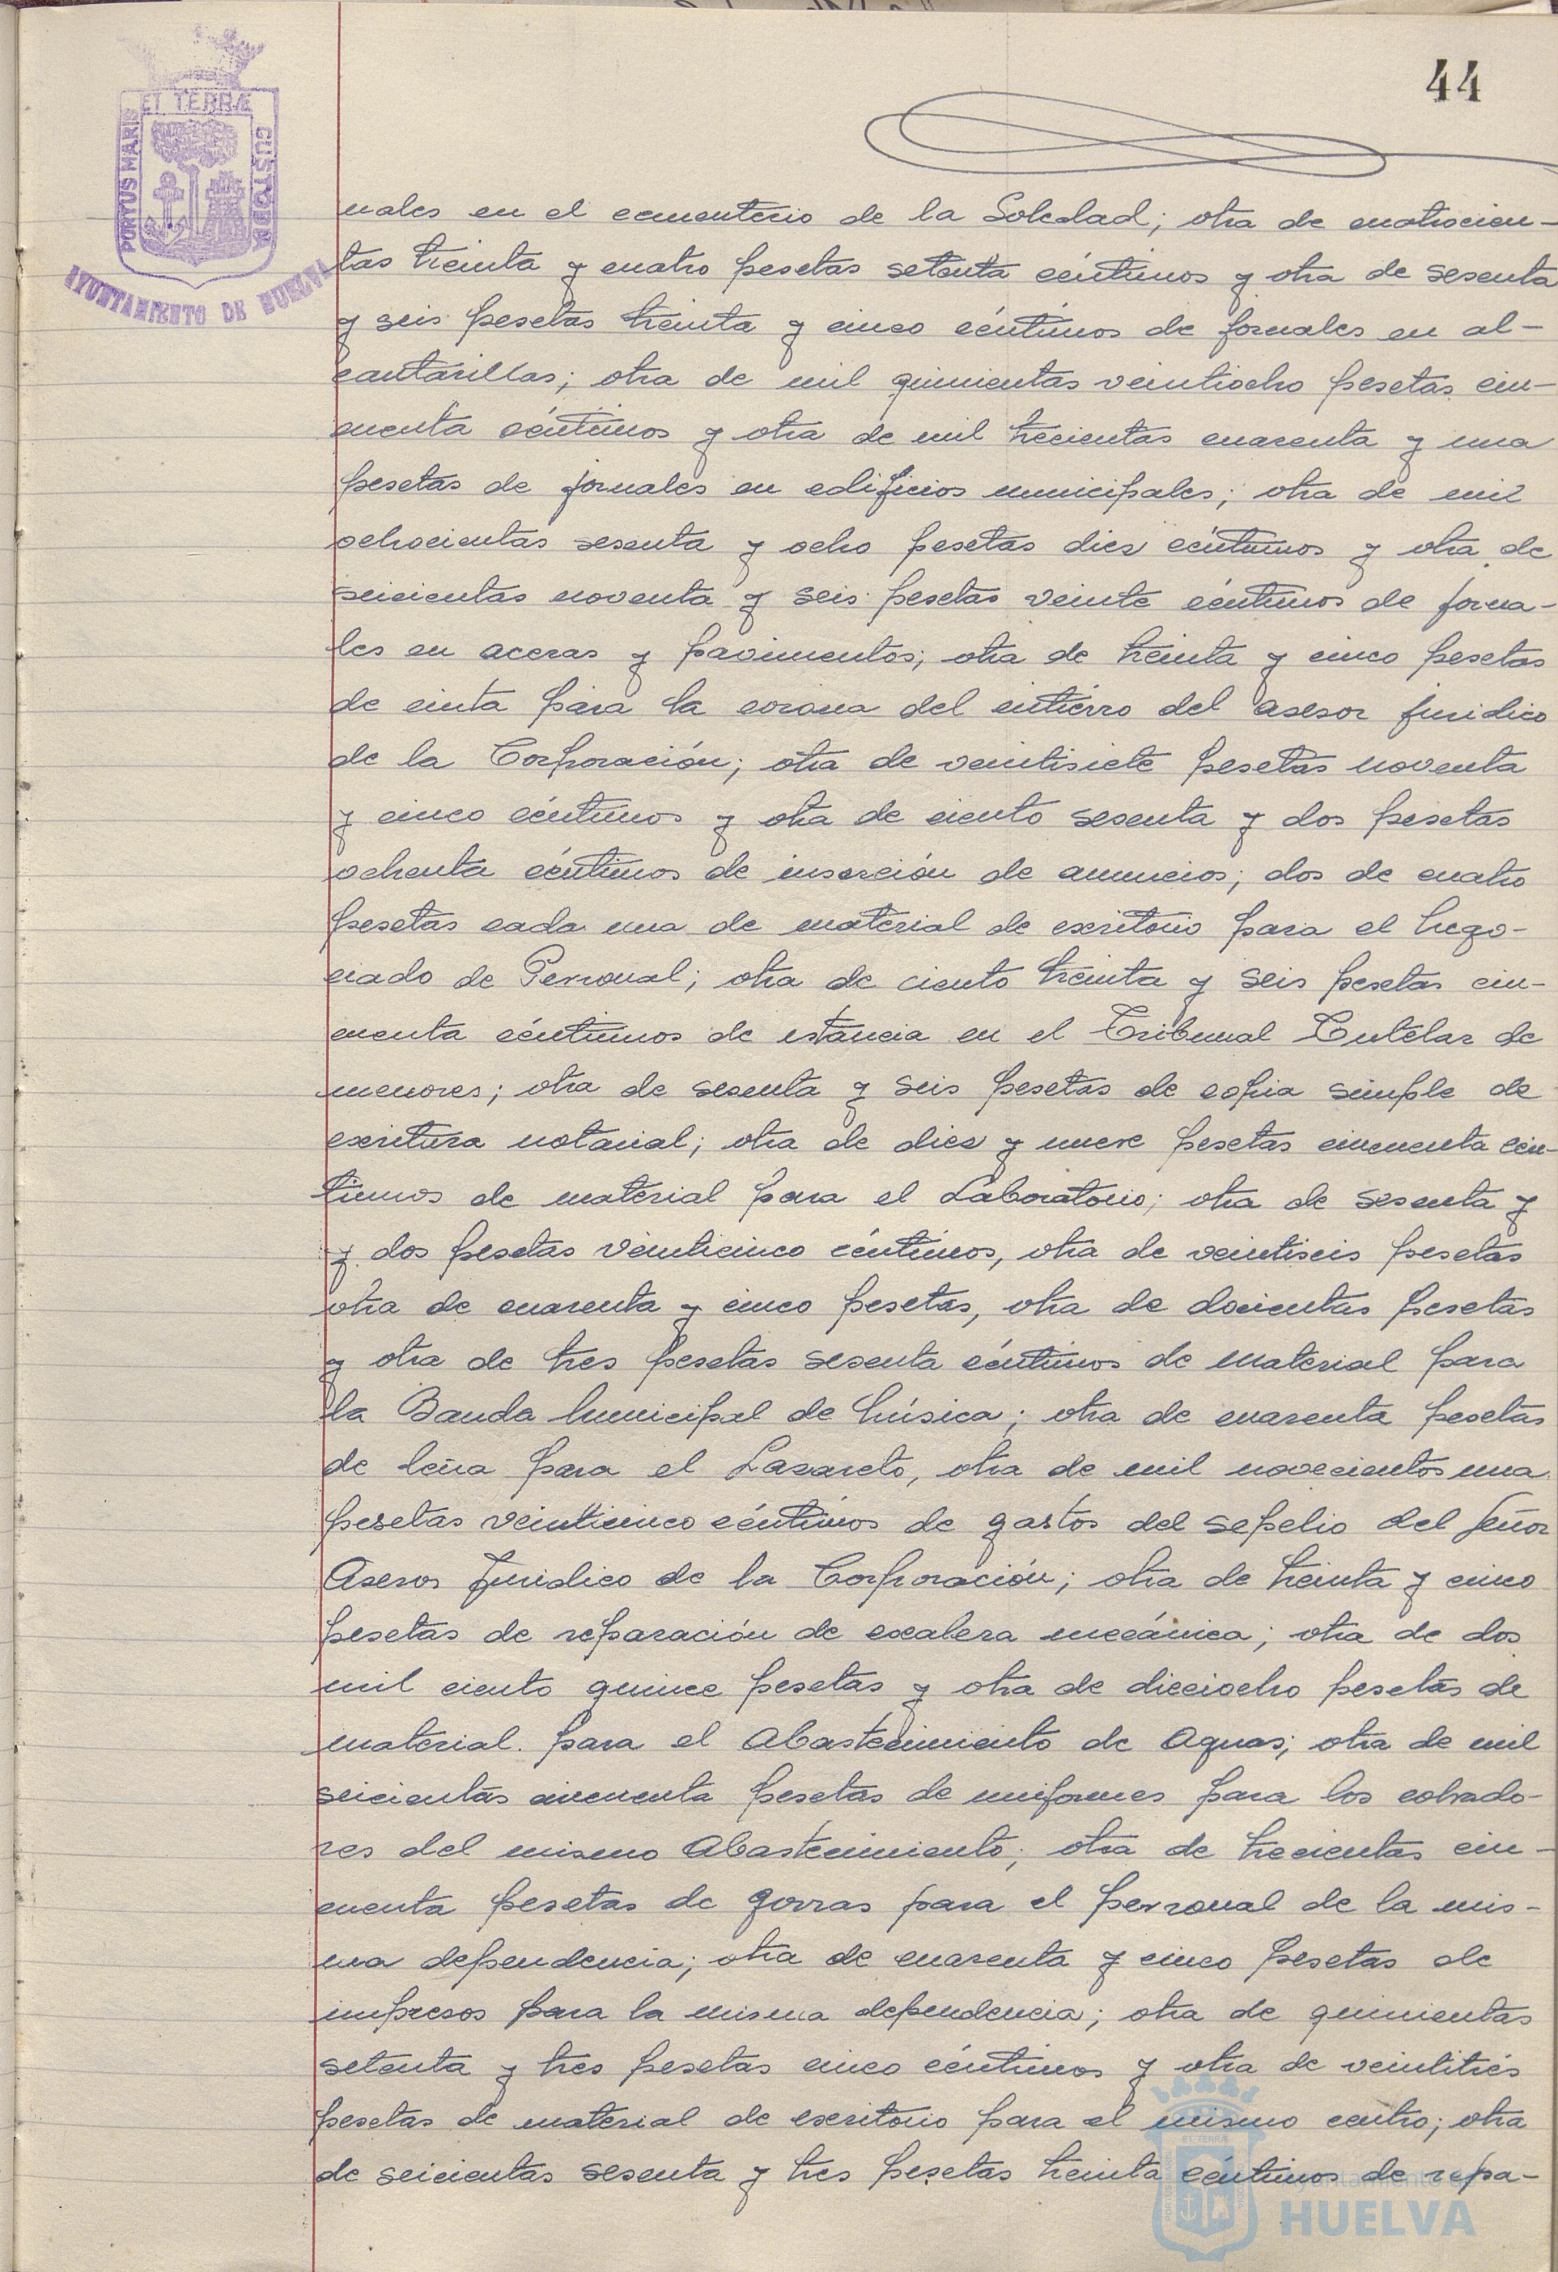 44
ET TERRÆ
PORTUS MARIS
CUSTODIA
AYUNTAMIENTO DE HUELVA
nales en el cementerio de la Soledad; otra de cuatrocien-
tas treinta y cuatro pesetas setenta céntimos y otra de sesenta
y seis pesetas treinta y cinco céntimos de jornales en al-
cantarillas; otra de mil quinientas veintiocho pesetas cin-
cuenta céntimos y otra de mil trecientas cuarenta y una
pesetas de jornales en edificios municipales; otra de mil
ochocientas sesenta y ocho pesetas diez céntimos y otra de
seicientas noventa y seis pesetas veinte céntimos de jorna-
les en aceras y pavimentos; otra de treinta y cinco pesetas
de cinta para la corona del entierro del asesor juridico
de la Corporación; otra de veintisiete pesetas noventa
y cinco céntimos y otra de ciento sesenta y dos pesetas
ochenta céntimos de inserción de anuncios; dos de cuatro
pesetas cada una de material de escritorio para el Nego-
ciado de Personal; otra de ciento treinta y seis pesetas cin-
cuenta céntimos de estancia en el Tribunal Tutelar de
menores; otra de sesenta y seis pesetas de copia simple de
escritura notarial; otra de diez y nueve pesetas cincuenta cén-
timos de material para el Laboratorio; otra de sesenta y
y dos pesetas veinticinco céntimos, otra de veintiseis pesetas
otra de cuarenta y cinco pesetas, otra de docientas pesetas
y otra de tres pesetas sesenta céntimos de material para
la Banda Municipal de Música; otra de cuarenta pesetas
de leña para el Lazareto, otra de mil novecientos una
pesetas veinticinco céntimos de gastos del sepelio del Señor
Asesor Juridico de la Corporación; otra de treinta y cinco
pesetas de reparación de escalera mecánica; otra de dos
mil ciento quince pesetas y otra de dieciocho pesetas de
material para el Abastecimiento de Aguas; otra de mil
seicientas cincuenta pesetas de uniformes para los cobrado-
res del mismo Abastecimiento; otra de trecientas cin-
cuenta pesetas de gorras para el personal de la mis-
ma dependencia; otra de cuarenta y cinco pesetas de
impresos para la misma dependencia; otra de quinientas
setenta y tres pesetas cinco céntimos y otra de veintitrés
pesetas de material de escritorio para el mismo centro; otra
de seicientas sesenta y tres pesetas treinta céntimos de repa-
Ayuntamiento de
HUELVA